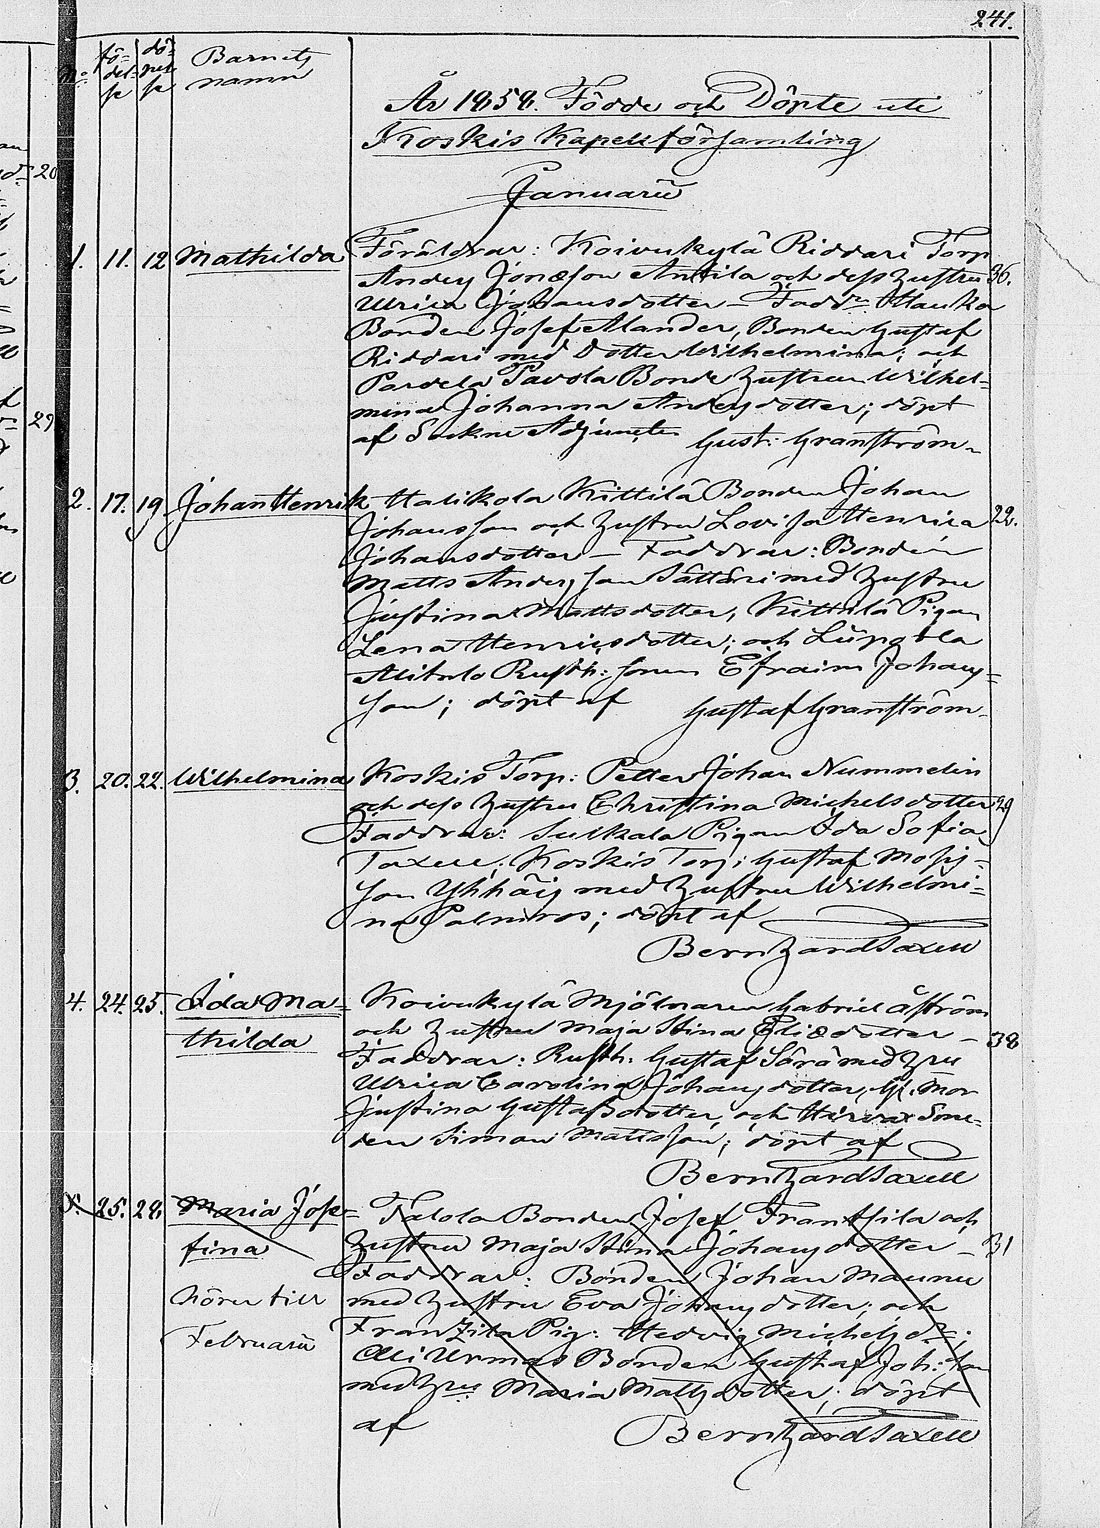 241.
No
födelse
döpelse
Barnets
namn
År 1858. Födde och Döpte uti
Koskis Kapellförsamling
Januarii
1. 11. 12 Mathilda Föräldrar: Koivukylä Riddari Torp
Anders Jonasson Anttila och dess hustru 36.
Ulrica Johansdotter – Faddr:
Bonden Josef Alander, Bonden Gustaf
Riddari med Dotter Wilhelmina; och
Pavola Bonde hustrun Wilhel-
mina Johanna Andersdotter; döpt
af Sockne Adjuncten Gust: Granström.
2. 17. 19 Johan Henrik Halikola Kittilä Bonden Johan
Johansson och hustru Lovisa Henrica 22.
Johansdotter – Faddrar: Bonden
Matts Andersson Sättäri med hustru
Justina Mattsdotter, Kittilä Pigan
Lena Henricsdotter; och Liipola
Alitalo Rusth: sonen Efraim Johans-
son; döpt af Gustaf Granström.
3. 20. 22. Wilhelmina Koskis Torp: Petter Johan Nummelin
och dess hustru Christina Michelsdotter 29
Faddrar: Suikala Pigan Ida Sofia
Taxell; Koskis Torp: Gustaf
son med hustru Wilhelmi-
na Palmros; döpt af
Bernhard Taxell
4. 24. 25. Ida Ma- Koivukylä Mjölnaren Gabriel Åström
thilda och hustru Maja Stina Eliædotter – 38
Faddrar: Rusth: Gustaf Sorä med hru
Ulrica Carolina Johansdotter, Gl. Mor
Justina Gustafsdotter, och
den Simon Mattsson; döpt af
Bernhard Taxell
5. 25. 28. Maria Jose- Talola Bonden Josef Frantsila och
fina hustru Maja Stina Johansdotter – 31
Faddrar: Bonden Johan Maunu
hörer till med hustru Eva Johansdotter; och
Februarii Franzila Pig: Hedvig Michelsdr:;
Urmas Bonden Gustaf Joh:son
med hru Maria Mattsdotter; döpt
af Bernhard Taxell